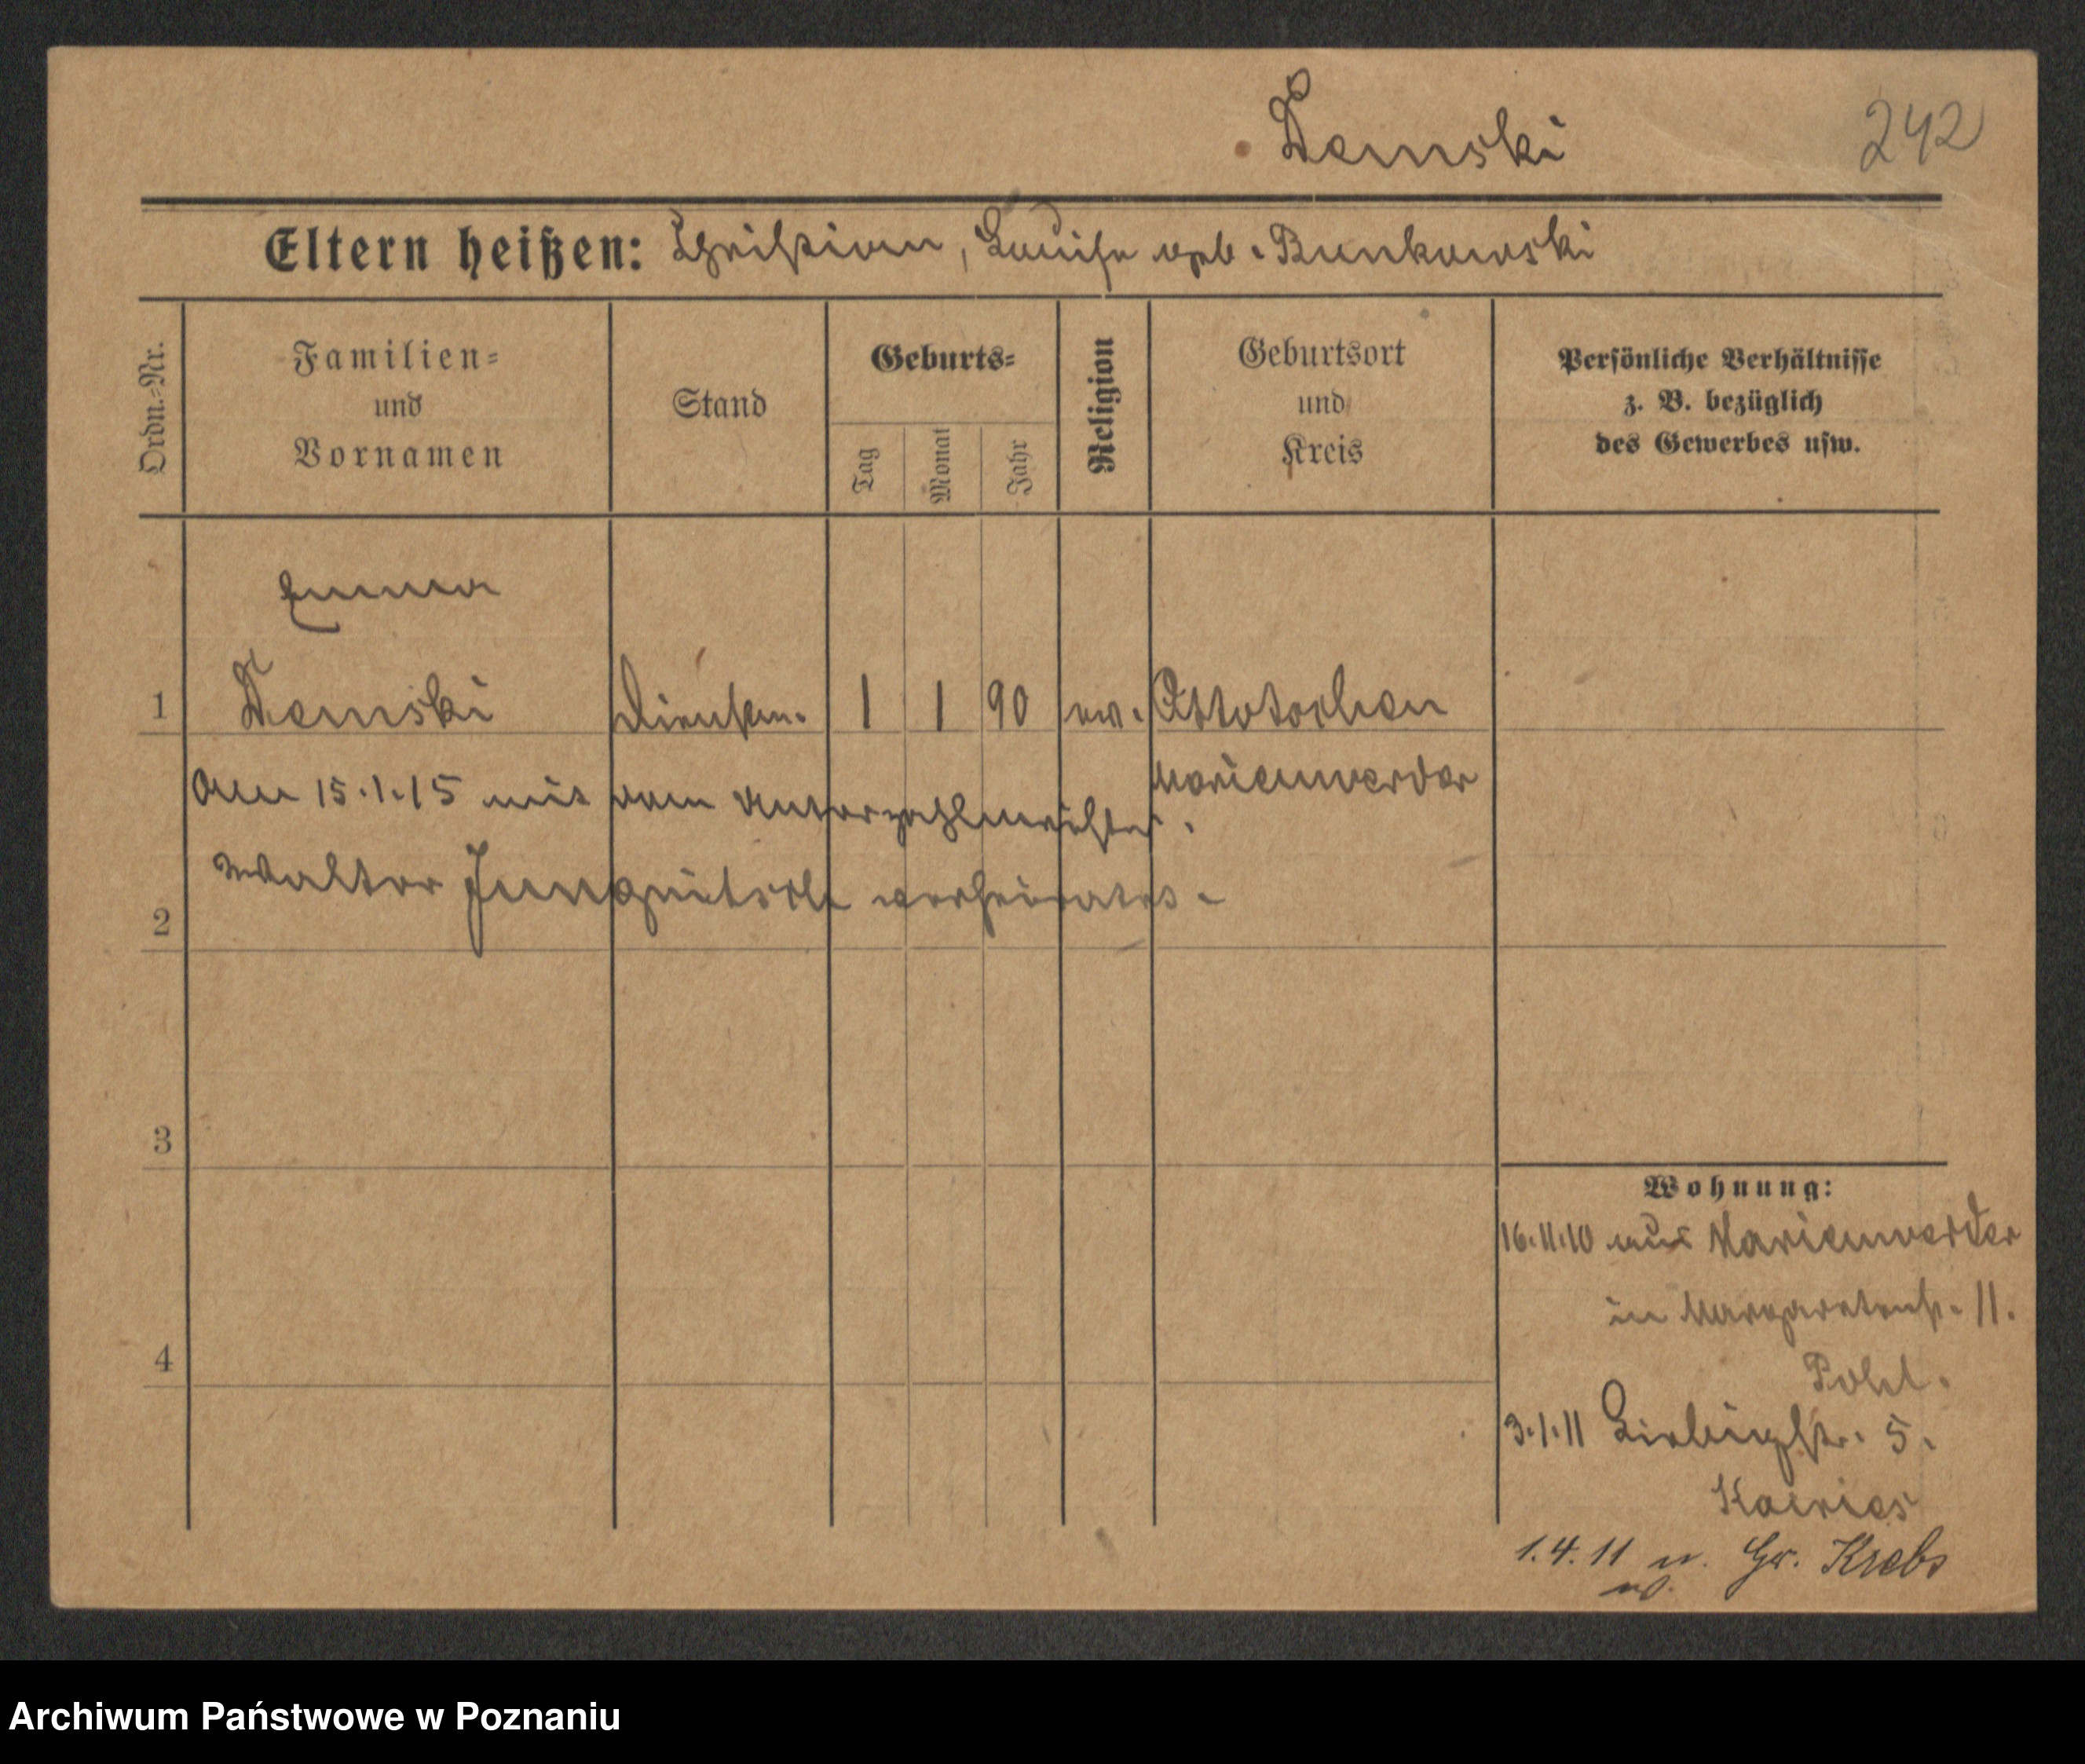 Demski
242
Eltern heißen: Christian, Louise geb. Bunkowski
Ordn.-Nr.
Familien-
und
Vornamen
Stand
Geburts-
Tag
Monat
Jahr
Religion
Geburtsort
und
Kreis
Persönliche Verhältnisse
z. B. bezüglich
des Gewerbes usw.
Emma
1 Demski Dienstm. 1 1 90 ev. Ottotschen
Marienwerder
Am 15.1.15 mit dem
Walter verheiratet.
2
3
4
Wohnung:
16.11.10 aus Marienwerder
in Margaretenstr. 11.
Pohl.
3.1.11 Liebigstr. 5.
1.4.11 n. Gr. Krebs
Archiwum Państwowe w Poznaniu